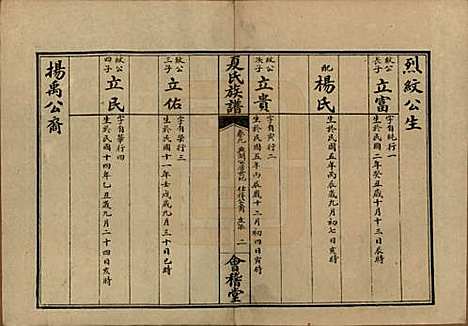 烈紋公生
紋公長子
立富
字有純行一
生於民國二年癸丑歲十月十三日辰時
配
楊氏
生於民國五年丙辰歲九月初七日亥時
紋公次子
立貴
字有寅行二
生於民國五年丙辰歲十二月初四日亥時
夏氏族譜
卷九
二
會稽堂
紋公三子
立佑
字有華行三
生於民國十一年壬戌歲九月三十日巳時
紋公四子
立民
字有榮行四
生於民國十四年乙丑歲九月二十四日亥時
楊禹公裔